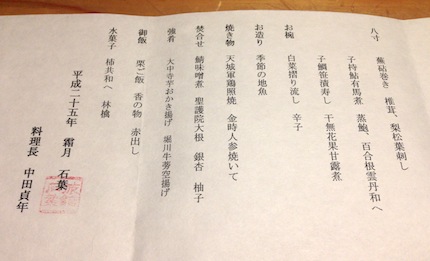 八寸　蕪砧巻き　椎茸、梨松葉刺し
子持鮎有馬煮　蒸鮑、百合根雲丹和へ
子鯛笹漬寿し　干無花果甘露煮
お椀　白菜摺り流し　辛子
お造り　季節の地魚
焼き物　天城軍鶏照焼　金時人参焼いて
焚合せ　鯖味噌煮　聖護院大根　銀杏　柚子
強肴　大中寺芋おかき揚げ　堀川牛蒡空揚げ
御飯　栗ご飯　香の物　赤出し
水菓子　柿共和へ　林檎
平成二十五年　霜月　石葉
料理長　中田貞年